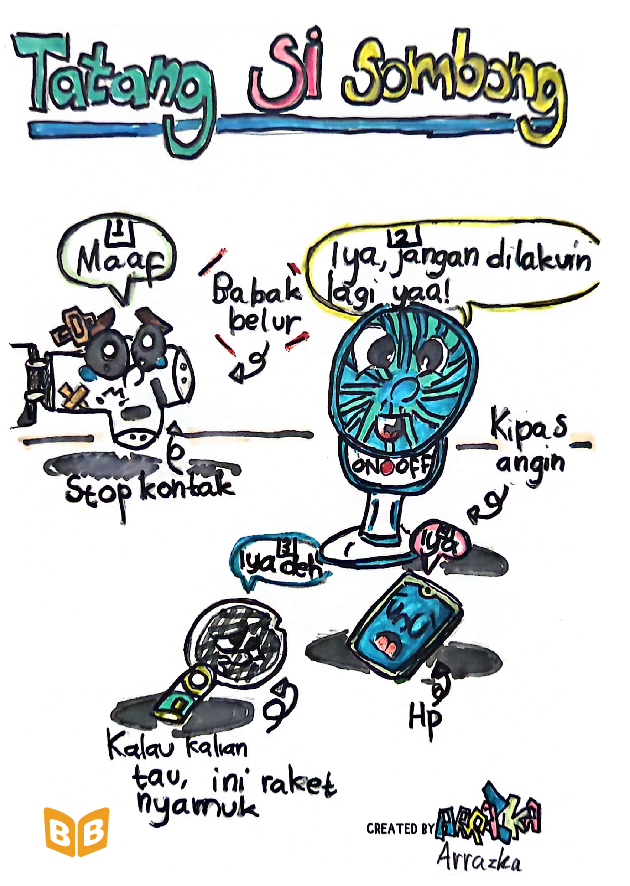 Tatang Si Sombong
1
Maaf
2
Iya, jangan dilakuin
lagi yaa!
Babak
belur
Stop kontak
ON OFF
Kipas
angin
3
Iya deh
Iya
Hp
Kalau kalian
tau, ini raket
nyamuk
BB
CREATED BY ARRAZKA
Arrazka